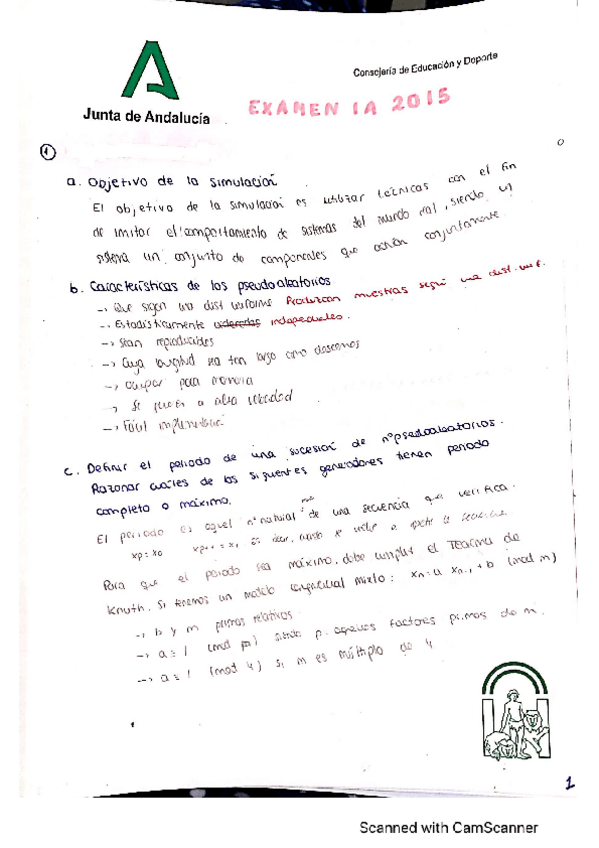 Consejería de Educación y Deporte
Junta de Andalucía
EXAMEN IA 2015
1
a. Objetivo de la simulación
El objetivo de la simulación es utilizar técnicas con el fin
de imitar el comportamiento de sistemas del mundo real, siendo un
sistema un conjunto de componentes que actúan conjuntamente.
b. Características de los pseudoaleatorios
-> Que sigan una dist uniforme Produzcan muestras según una dist. unif.
-> Estadísticamente independientes.
-> Sean reproducibles
-> Cuya longitud sea tan larga como deseemos
-> Ocupar poca memoria
-> Se generen a alta velocidad
-> Fácil implementación
c. Definir el periodo de una sucesión de nº pseudoaleatorios.
Razonar cuáles de los siguientes generadores tienen periodo
completo o máximo.
El periodo es aquel nº natural de una secuencia que verifica.
xp = x0 xp+1 = x1, es decir, cuando se vuelve a repetir la secuencia.
Para que el periodo sea máximo, debe cumplir el Teorema de
Knuth. Si tenemos un modelo congruencial mixto: xn = a xn-1 + b (mod m)
-> b y m primos relativos.
-> a ≡ 1 (mod p) siendo p aquellos factores primos de m.
-> a ≡ 1 (mod 4) si m es múltiplo de 4
1
Scanned with CamScanner